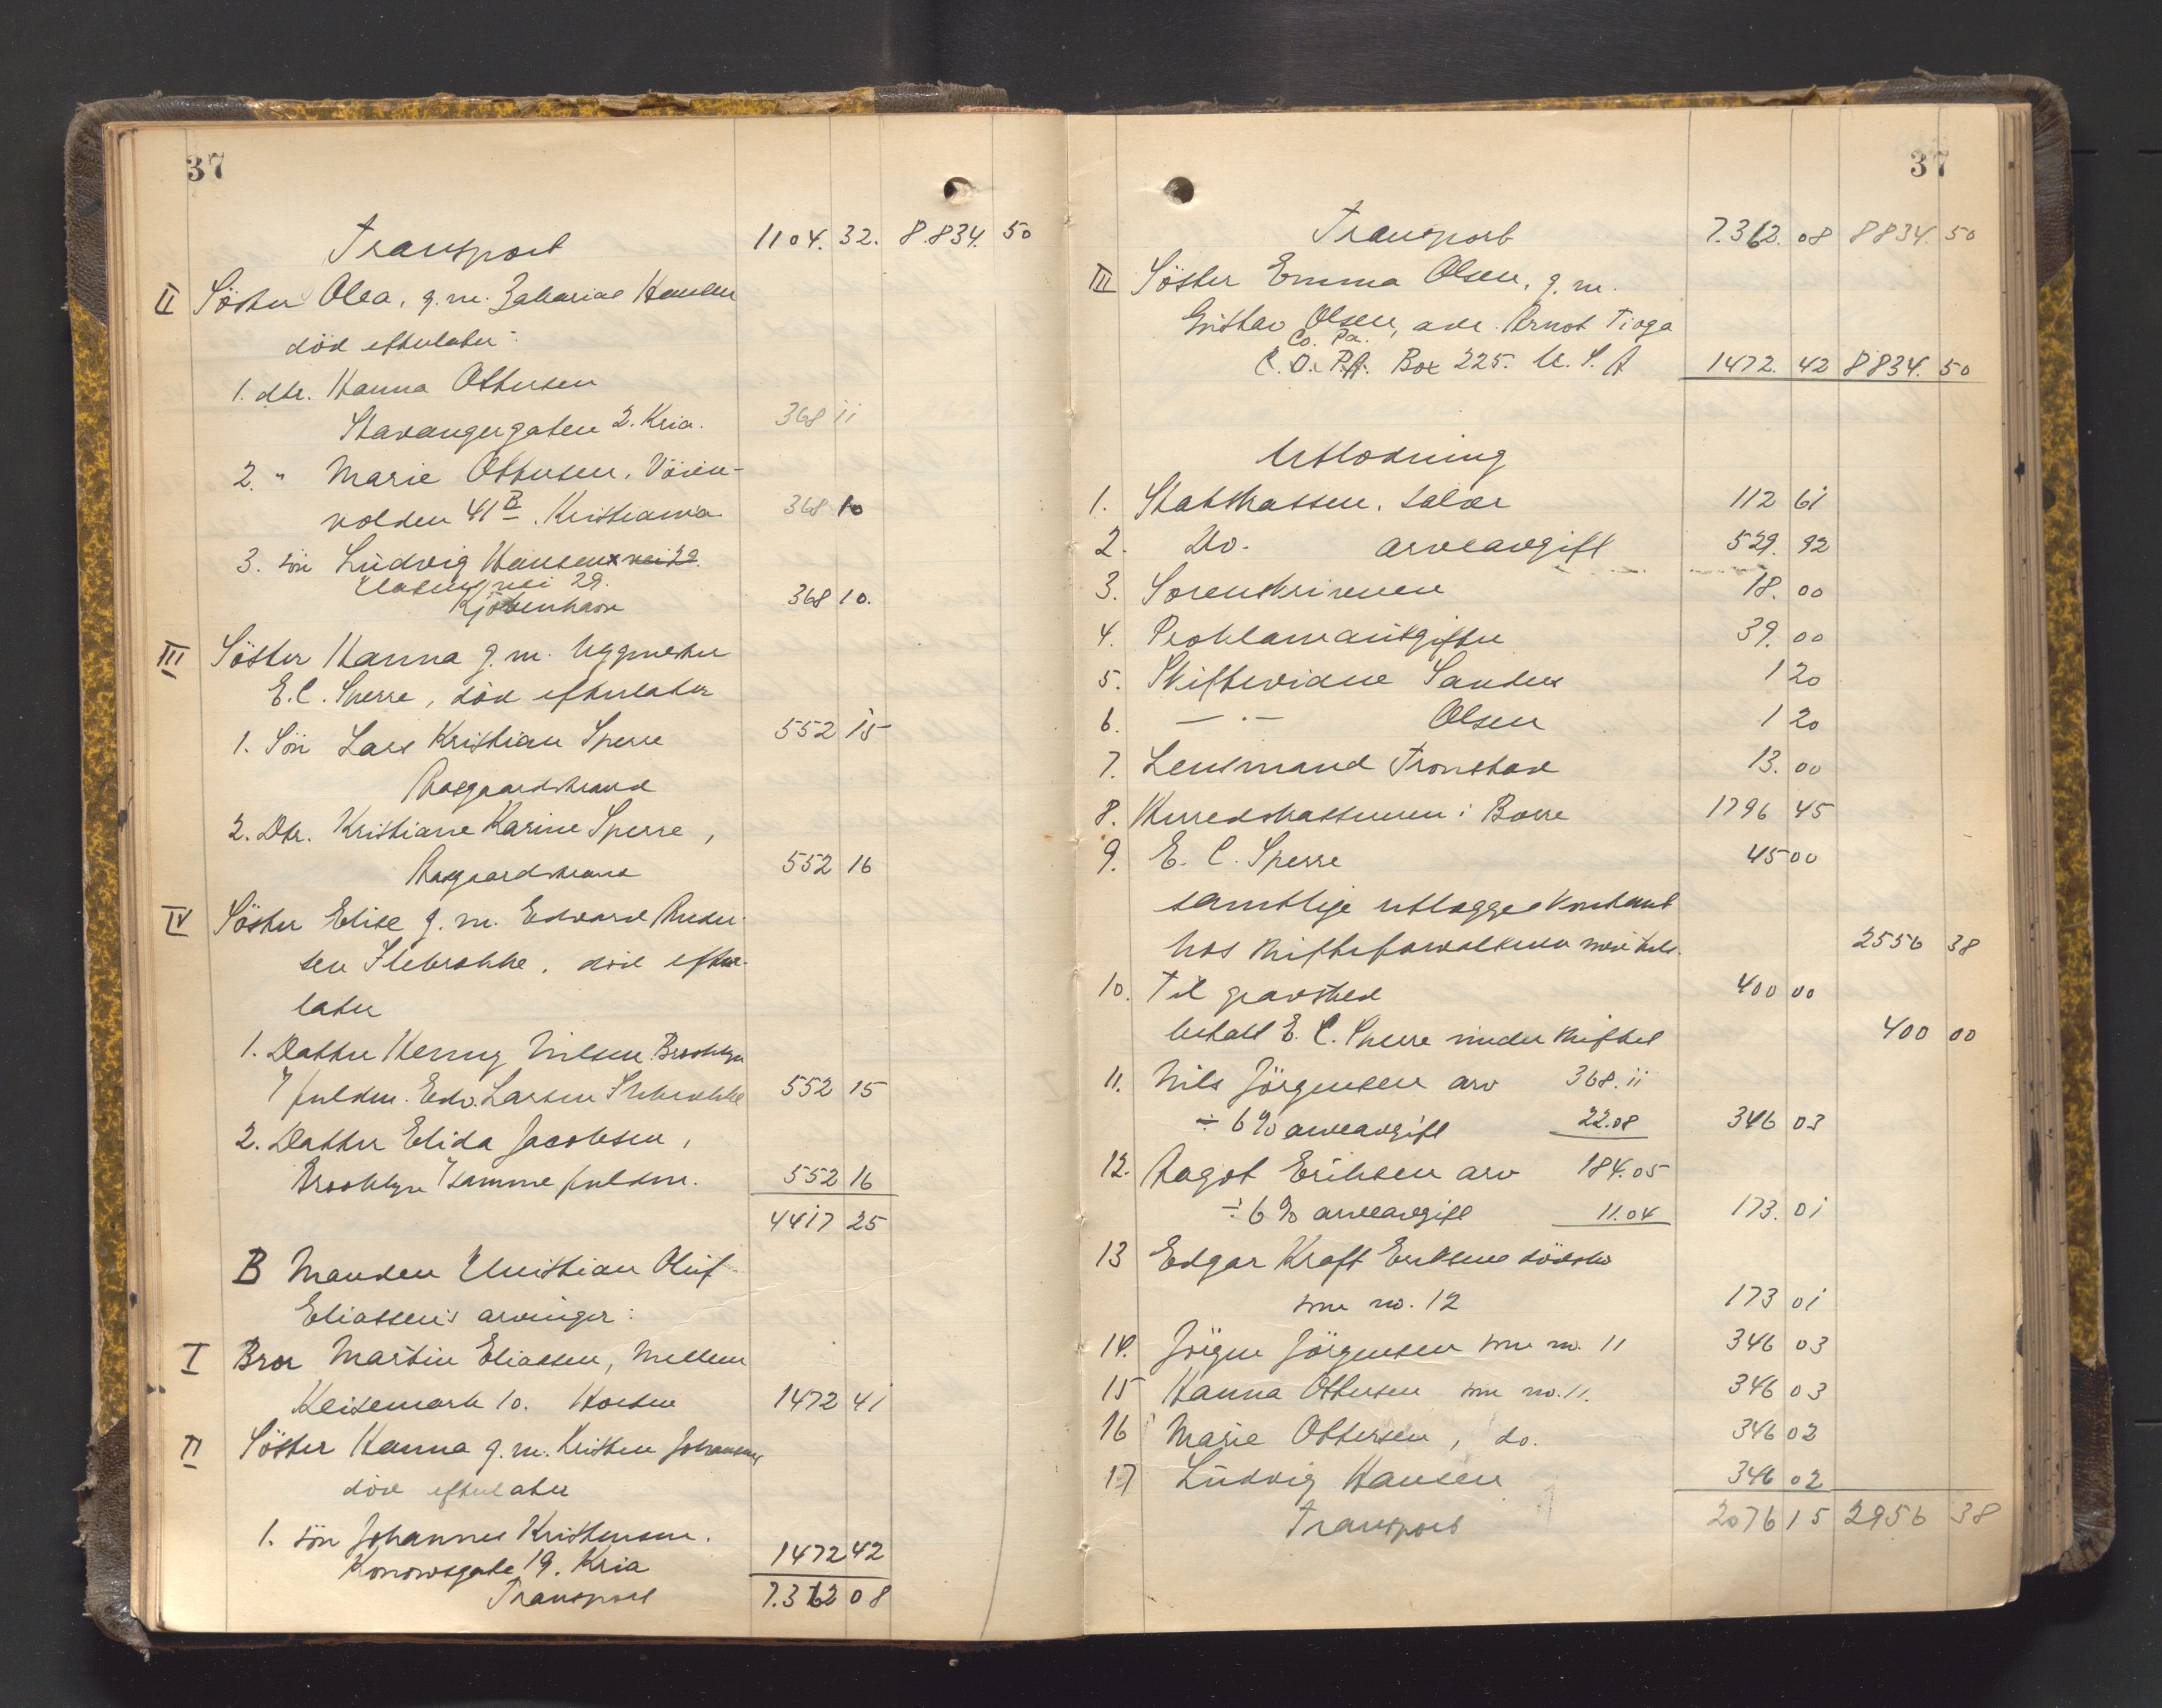 37
Transport 1104. 32. 8.834. 50
II Söster Olea, g.m. Zakarias Hansen
död efterlater:
1. dtr. Hanna Ottersen
Stavangergaten 2. Kria. 368 11
2. " Marie Ottersen, Vöien-
volden 41B. Kristiania 368 10
3. sön Ludvig Hansen vei 29.
vei 29.
Kjöbenhavn 368 10.
III Söster Hanna g.m. Uggmester
E.C. Sperre, död efterlater
1. Sön Lars Kristian Sperre 552 15
Aasgaardstrand
2. Dtr. Kristiane Karine Sperre,
Aasgaardstrand 552 16
IV Söster Elise g.m. Edvard Ander-
sen Slebrokke, död efter-
later
1. Datter Henny Nilsen Brooklyn
v/ fuldm. Edv. Larsen Slebrokke 552 15
2. Datter Elida Jacobsen,
Brooklyn v/ samme fuldm. 552 16
4417 25
B Manden Christian Oluf
Eliassen's arvinger:
I Bror Martin Eliassen, Mellem
Keisemark 10. Horten 1472 41
II Söster Hanna g.m. Kristen Johansen
död efterlater
1. sön Johannes Kristensen.
Konowsgate 19. Kria 1472 42
Transport 7.362 08
37
Transport 7.362. 08 8834. 50
III Söster Emma Olsen, g.m.
Gustav Olsen, adr. Arnot Tioga
Co. Pa.
P.O. Box 225. U.S.A 1472. 42 8834. 50
Utlodning
1. Statskassen, salær 112 61
2. Do. arveavgift 529. 92
3. Sorenskriveren 18. 00
4. Proklamautgifter 39. 00
5. Skiftevidne Sanders 1 20
6. — . — Olsen 1 20
7. Lensmand Tronstad 13. 00
8. Herredskassereren i Borre 1796 45
9. E. C. Sperre 45 00
samtlige utlægges kontant
hos skifteforvalteren 2556 38
10. Til gravsted 400 00
betalt E. C. Sperre under skiftet 400 00
11. Nils Jörgensen arv 368.11
÷ 6% arveavgift 22.08 346 03
12. Aagot Eriksen arv 184.05
÷ 6% arveavgift 11.04 173. 01
13 Edgar Kraft Eriksen
som no. 12 173 01
14. Jörgen Jörgensen som no. 11 346 03
15 Hanna Ottersen som no. 11. 346 03
16 Marie Ottersen, do. 346 02
17 Ludvig Hansen 346 02
Transport 2076 15 2956 38